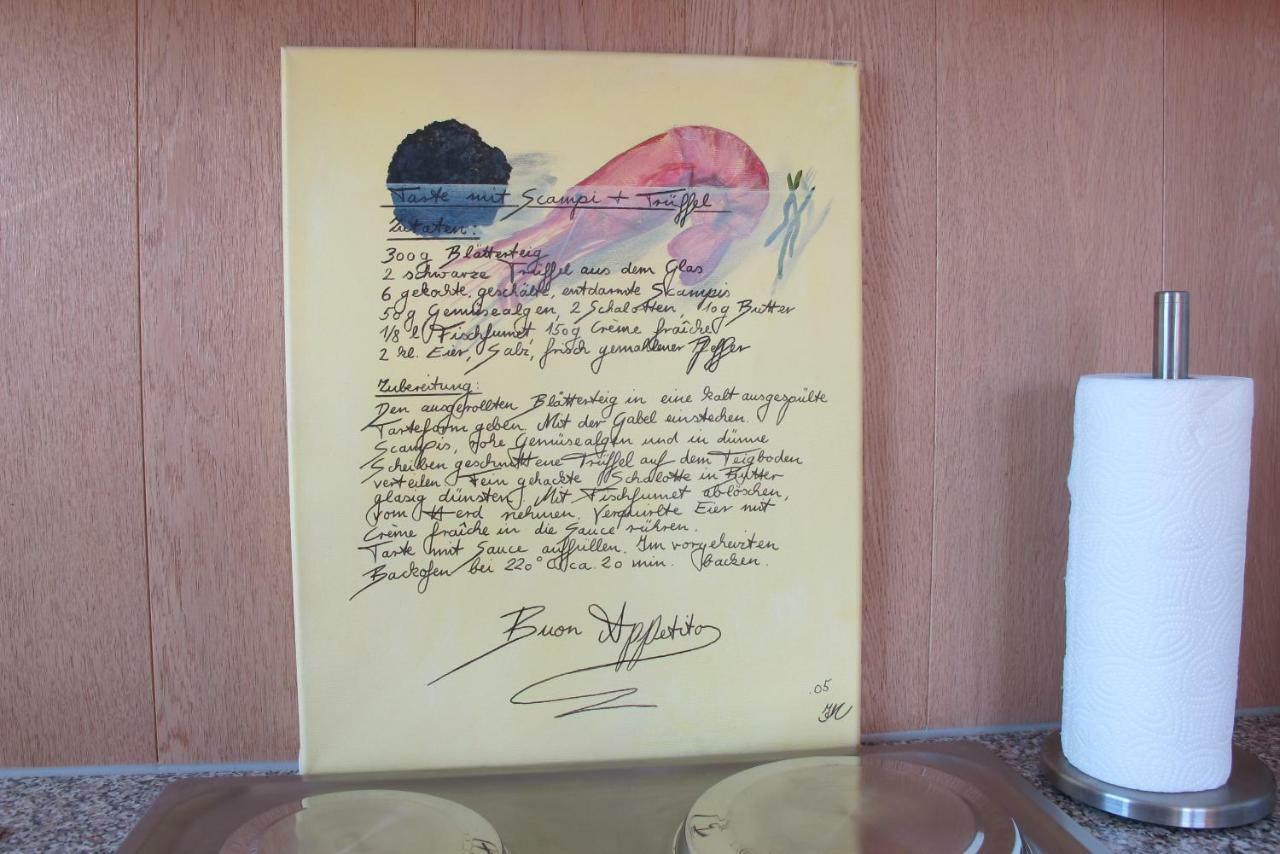 Tarte mit Scampi + Trüffel
Zutaten:
300g Blätterteig
2 schwarze Trüffel aus dem Glas
6 gekochte, geschälte, entdarmte Scampis
50g Gemüsealgen, 2 Schalotten, 10g Butter
1/8 l Fischfumet, 150g Crème fraîche
2 kl. Eier, Salz, frisch gemahlener Pfeffer
Zubereitung:
Den ausgerollten Blätterteig in eine kalt ausgespülte
Tarteform geben. Mit der Gabel einstechen.
Scampis, rohe Gemüsealgen und in dünne
Scheiben geschnittene Trüffel auf dem Teigboden
verteilen. Fein gehackte Schalotte in Butter
glasig dünsten. Mit Fischfumet ablöschen,
vom Herd nehmen. Verquirlte Eier mit
Crème fraîche in die Sauce rühren.
Tarte mit Sauce auffüllen. Im vorgeheizten
Backofen bei 220° C ca. 20 min. backen.
Buon Appetito
.05